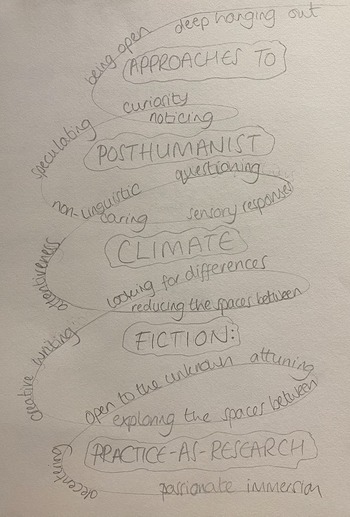 deep hanging out
being open
APPROACHES TO
curiosity
noticing
speculating
POSTHUMANIST
questioning
non-linguistic
caring
sensory responses
CLIMATE
attentiveness
looking for differences
reducing the spaces between
FICTION:
creative writing
open to the unknown attuning
exploring the spaces between
PRACTICE-AS-RESEARCH
decentering
passionate immersion